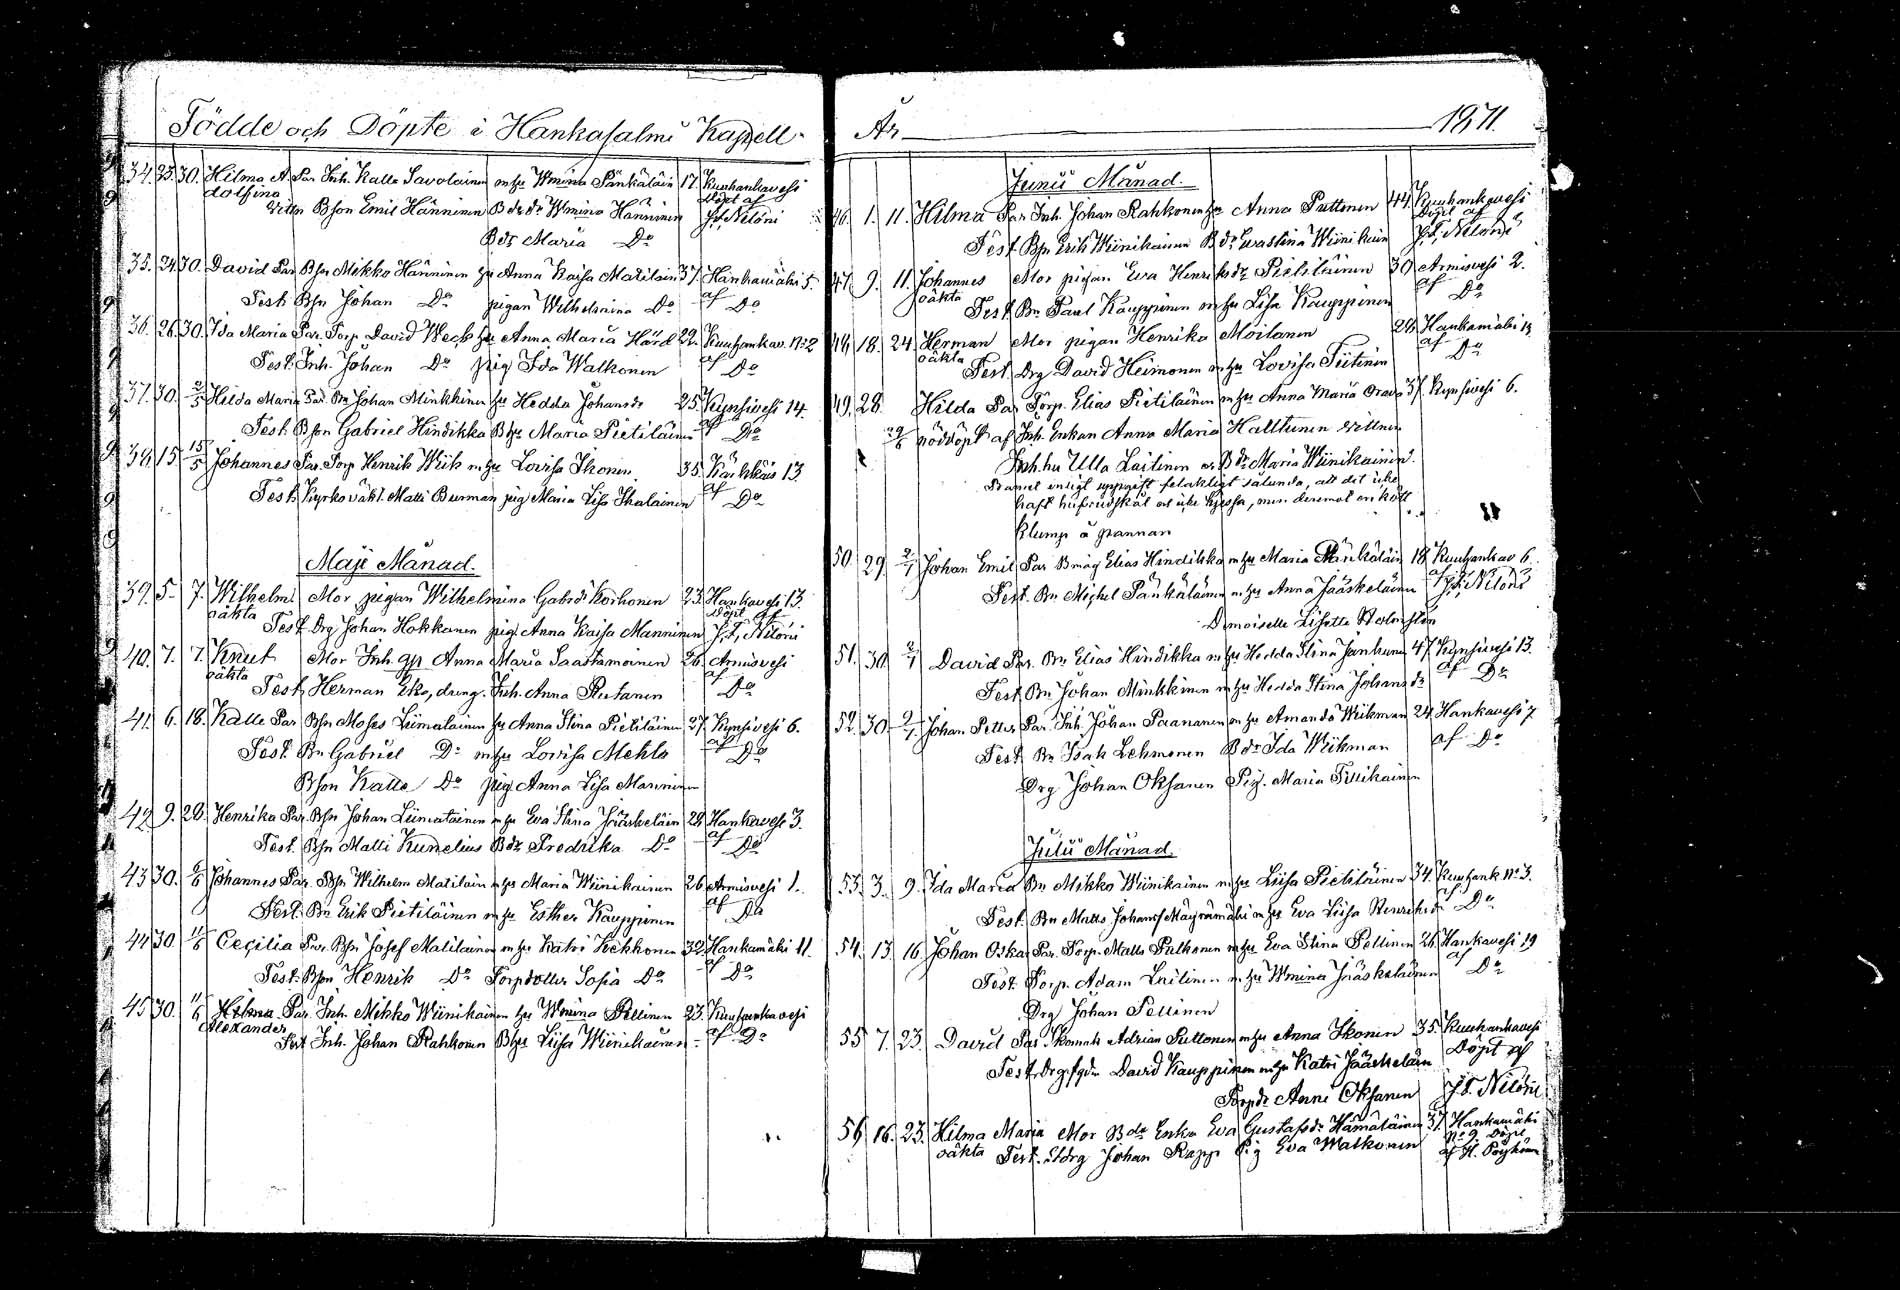 Födde och Döpte i Hankasalmi Kapell
34. 23. 30. Hilma A. Par. Inh. Kalle Savolainen m hu Wmina Pänkäläin 17. Kuuhankavesi
dolfina Döpt af
Vittn Bson Emil Hänninen Bdr Wmina Hänninen J. F. Nilóni
Bdr Maria Do
35. 24. 30. David Par Bsn Mikko Hänninen hu Anna Kaisa Matilain 37. Hankamäki 5.
Test. Bsn Johan Do pigan Wilhelmina Do af Do
36. 26. 30. Ida Maria Par. Torp. David Weck hu Anna Maria Hård 22. Kuuhankav. No 2
Test. Inh. Johan Do pig Ida Walkonen af Do
37. 30. 2/5 Hilda Maria Par. Bn Johan Minkkinen hu Hedda Johansdr 25. Kynsivesi 14.
Test. Bson Gabriel Hindikka Bhu Maria Pietiläinen af Do
38. 15 15/5 Johannes Par. Torp Henrik Wiik m hu Lovisa Ikonen 35. Kärkkäis 13.
Test. Kyrkovakt. Matti Burman pig Maria Lisa Ihalainen af Do
Maji Månad.
39. 5. 7. Wilhelm Mor pigan Wilhelmina Gabrsdr Korhonen 23. Hankavesi 13.
oäkta Döpt af
Test. Drg Johan Hokkanen pig Anna Kaisa Manninen J. F. Nilóni
40. 7. 7. Knut Mor Inh. Anna Maria Saastamoinen 26. Armisvesi
oäkta af
Test. Herman Eko, dräng. Inh. Anna Rutanen Do
41. 6. 18. Kalle Par Bsn Moses Liimatainen hu Anna Stina Pietiläinen 27. Kynsivesi 6.
Test. Bn Gabriel Do m hu Lovisa Mehto af Do
Bson Kalle Do pig Anna Lisa Manninen
42. 9. 28. Henrika Par. Bsn Johan Liimatainen m hu Eva Stina Jääskeläin 28 Hankaves 3.
Test. Bsn Matti Kumelius Bdr Fredrika Do af Do
43 30. 6/6 Johannes Par. Bsn Wilhelm Matilain m hu Maria Wiinikainen 26. Armisvesi 1.
Test. Bn Erik Pietiläinen m hu Esther Kauppinen af Do
44 30 11/6 Cecilia Par. Bsn Josef Matilainen m hu Katri Kekkonen 32. Hankamäki 11.
Test. Bsn Henrik Do Torpdotter Sofia Do af Do
45 30. 11/6 Hilma Par. Inh. Mikko Wiinikainen hu Wmina Pellinen 23. Kuuhankavesi
Alexander
Test Inh. Johan Rahkonen Bhu Liisa Wiinikainen af Do
År 1871.
Junii Månad.
46. 1. 11. Hilma Par Inh. Johan Rahkonen hu Anna Puttonen 44. Kuuhankavesi
Döpt af
Test Bsn Erik Wiinikainen Bdr Ewastina Wiinikain J. F. Nilóni
47. 9. 11. Johannes Mor pigan Eva Henriksdr Pietiläinen 30 Armisvesi 2.
oäkta Test Bn Paul Kauppinen m hu Lisa Kauppinen af Do
48. 18. 24. Herman Mor pigan Henrika Moilanen 28 Hankamäki 13
oäkta Test. Drg David Heimonen m hu Lovisa Tiitinen af Do
49. 28. Hilda Par Torp. Elias Pietiläinen m hu Anna Maria Orava 37. Kynsivesi 6.
29/6 nöddöpt af Inh. Enkan Anna Maria Halttunen vittnen
Inh. hu Ulla Laitinen o. Bdr Maria Wiinikainen.
Barnet enligt uppgift felaktigt sålunda, att det icke
haft hufvudskål och icke hjessa, men deremot en kött
klump å pannan
50 29. 2/7 Johan Emil Par Bmåg Elias Hindikka m hu Maria Pänkäläin 18 Kuuhankav 6.
Test. Bn Michel Pänkäläinen m hu Anna Jääskeläinen J. F. Nilóni
Demoiselle Lisette Holmstén
51. 30. 2/7 David Par. Bn Elias Hindikka m hu Hedda Stina Janhunen 47. Kynsivesi 13.
Test. Bn Johan Minkkinen m hu Hedda Stina Johansdr af Do
52. 30. 2/7. Johan Petter Par. Inh. Johan Paananen m hu Amanda Wiikman 24. Hankavesi 7
Test Bn Isak Lehmonen Bdr Ida Wiikman af Do
Drg Johan Oksanen Pig. Maria Tiilikainen
Julii Månad.
53. 3. 9. Ida Maria Bn Mikko Wiinikainen m hu Liisa Pietiläinen 34. Kuuhank No 3.
Test. Bn Matts Johans Mäyrämäki m hu Eva Liisa Henriksdr af Do
54. 13. 16. Johan Oskar Par. Torp. Matts Pulkonen m hu Eva Stina Pellinen 26. Hankavesi 19
Test. Torp. Adam Laitinen m hu Wmina Jääskeläinen af Do
Drg Johan Pellinen
55 7. 23. David Par Skomak Adrian Puttonen m hu Anna Ikonen 35. Kuuhankavesi
Test. David Kauppinen m hu Katri Jääskeläin Döpt af
Torpdr Anni Oksanen J. F. Nilóni
56. 16. 23. Hilma Maria Mor Bde Enka Eva Gustafsdr Hämäläinen 37. Hankamäki
No 9. Döpt
oäkta Test. Stdrg Johan Rapp Pig Eva Walkonen af H. Pöyhönen